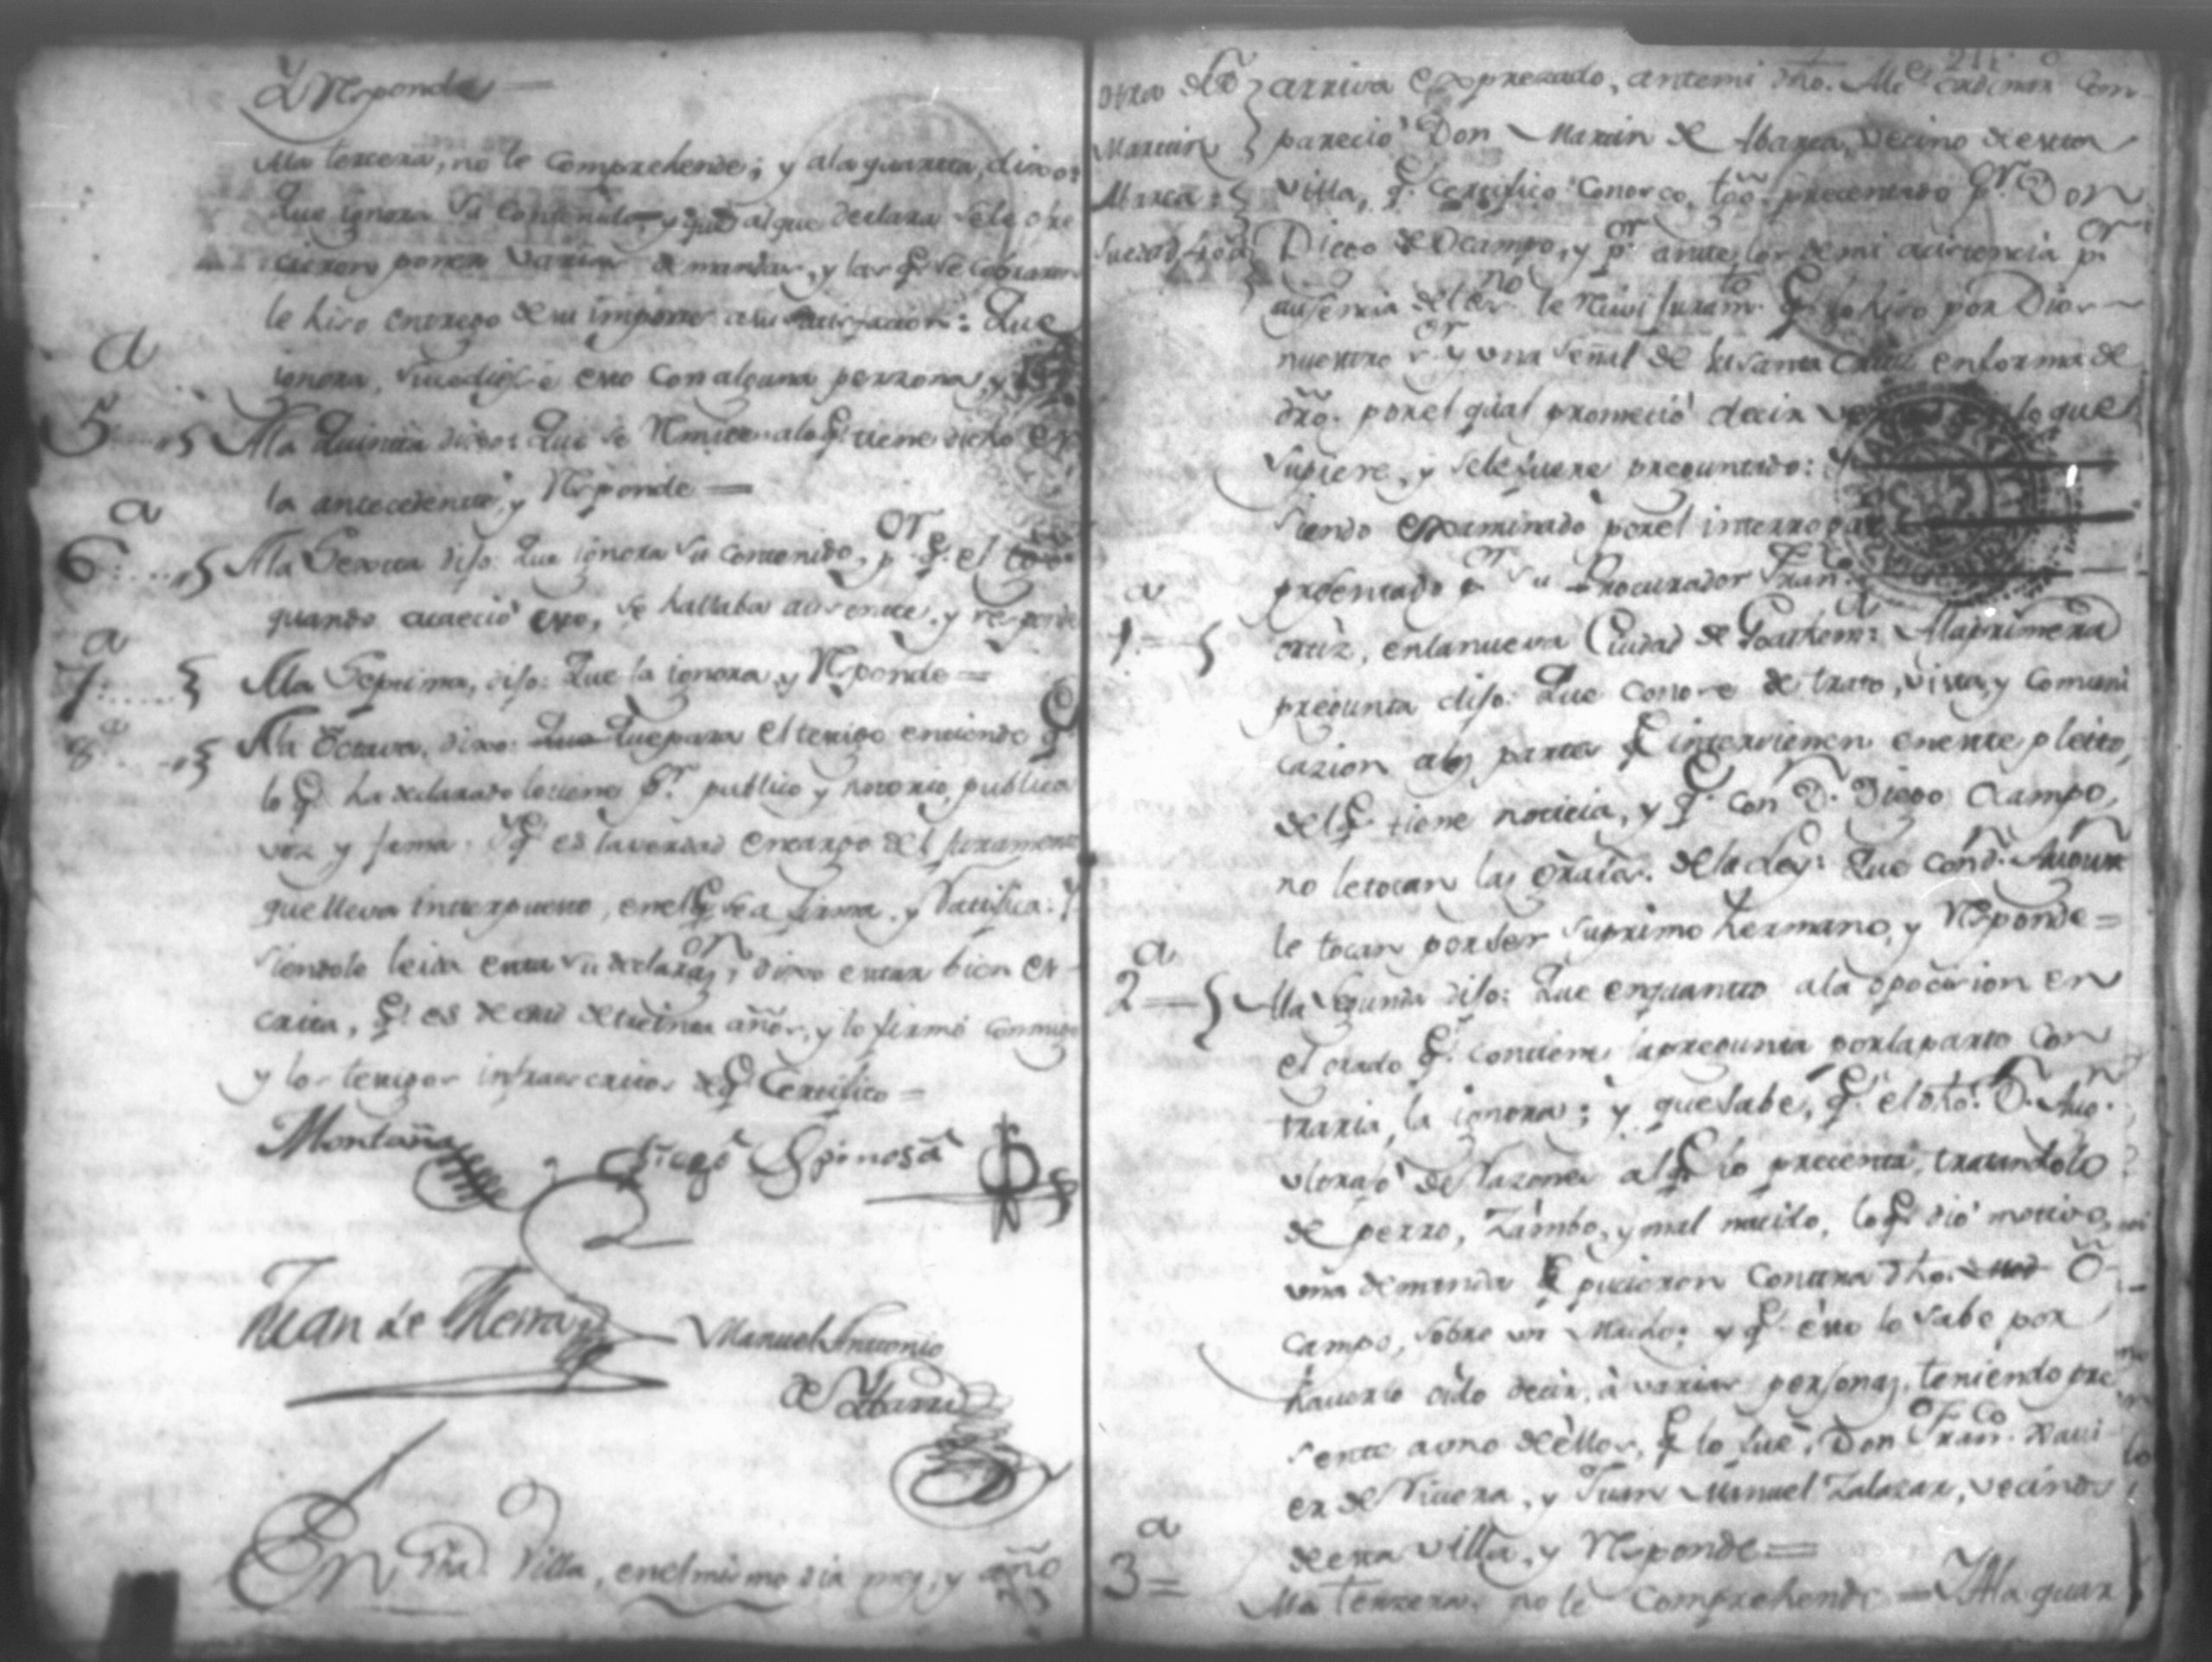 Y Responde =
Ala tercera, no le Comprehende; y ala quarta, dixo:
Que ignora su Contenido, y que al que declara se le ofre
cieron poner varias demandas, y las q.e se cobraron
le hiso entrego de su importe a su satisfacion: Que
ignora, susediese esto con alguna perzona, y
5.a Ala Quinta dixo: Que se Remite alo q.e tiene dicho en
la antecedente, y Responde =
6.a Ala Sexta diso: Que ignora su contenido, p.or q.e el t̃go
quando acaeció esto, se hallaba ausente, y responde
7.a Ala Septima, diso: Que la ignora y Responde =
8.a Ala Octava, dixo: Que Que para el testigo entiende q.e
lo q.e ha declarado lo tiene p.r publico y notorio, publica
voz y fama. Y q.e es la verdad encargo del juramento
que lleva interpuesto, en el q.e se afirma, y Ratifica: Y
siendole leida esta su declaraz.on, dixo estar bien es
crita, q.e es de edad de treinta años, y lo firmó conmigo
y los testigos infraescritos de q.e Certifico =
Montaña Diego Espinosa
Juan de Herra Manuel Antonio
de Ybarra
En dha. Villa, en el mismo dia mes, y año
Otra de D.n arriva expresado, antemi dho. Alc.e ordinar. Com
Martin parecio Don Martin de Abarca, Vecino de esta
Abarca: villa, q.e Certifico Conosco, tgo. precentado p.r Don
Diego de Ocampo, y p.or ante los de mi acistencia p.or
ausencia del Es.no le Recivi juram.to q.e lo hiso por Dios
nuestro S.or y una señal de la Santa Cruz en forma de
dro. por el qual prometió decir verdad en lo que
supiere, y se le fuere preguntado: Y
siendo examinado por el interrogat
presentado p.or su Procurador Fran.co
1.a ortiz, en la nueva Ciudad de Goathem.a: Ala primera
pregunta diso: Que conose de trato, vista, y comuni
cazion alas partes q.e intervienen en este pleito,
del q.e tiene noticia, y q.e con D.n Diego Ocampo,
no le tocan las Grales. de la Ley: Que con D.n
le tocan por ser su primo hermano, y Responde =
2.a Ala Segunda diso: Que en quanto ala opocicion en
el grado q.e contiene la pregunta por la parte Con
traria, la ignora; y que sabe, q.e el dho. D.n
ultrajó de Razones al q.e lo precenta, tratandolo
de perro, Zambo, y mal nacido, lo q.e dió motivo
una demanda q.e pucieron Contra dho. O
campo, sobre un Macho: y q.e esto lo sabe por
haverlo oido decir, à varias personas, teniendo pre
sente a uno de ellos, q.e lo fue, Don Fran.co Xavi
er de Rivera, y Juan Manuel Zalazar, vecinos
de esta villa, y Responde =
3.a Ala Terzera, no le Comprehende = Y Ala quar